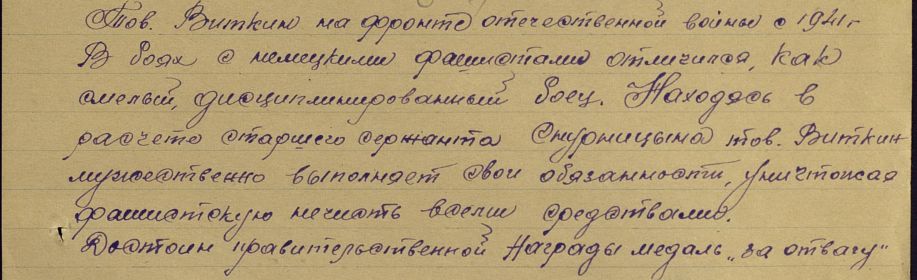 Тов. Виткин на фронте отечественной войны с 1941 г
В боях с немецкими фашистами отличился, как
смелый, дисциплинированный боец. Находясь в
расчете старшего сержанта Снурницына тов. Виткин
мужественно выполняет свои обязанности, уничтожая
фашистскую нечисть всеми средствами.
Достоин правительственной награды медаль „за отвагу"